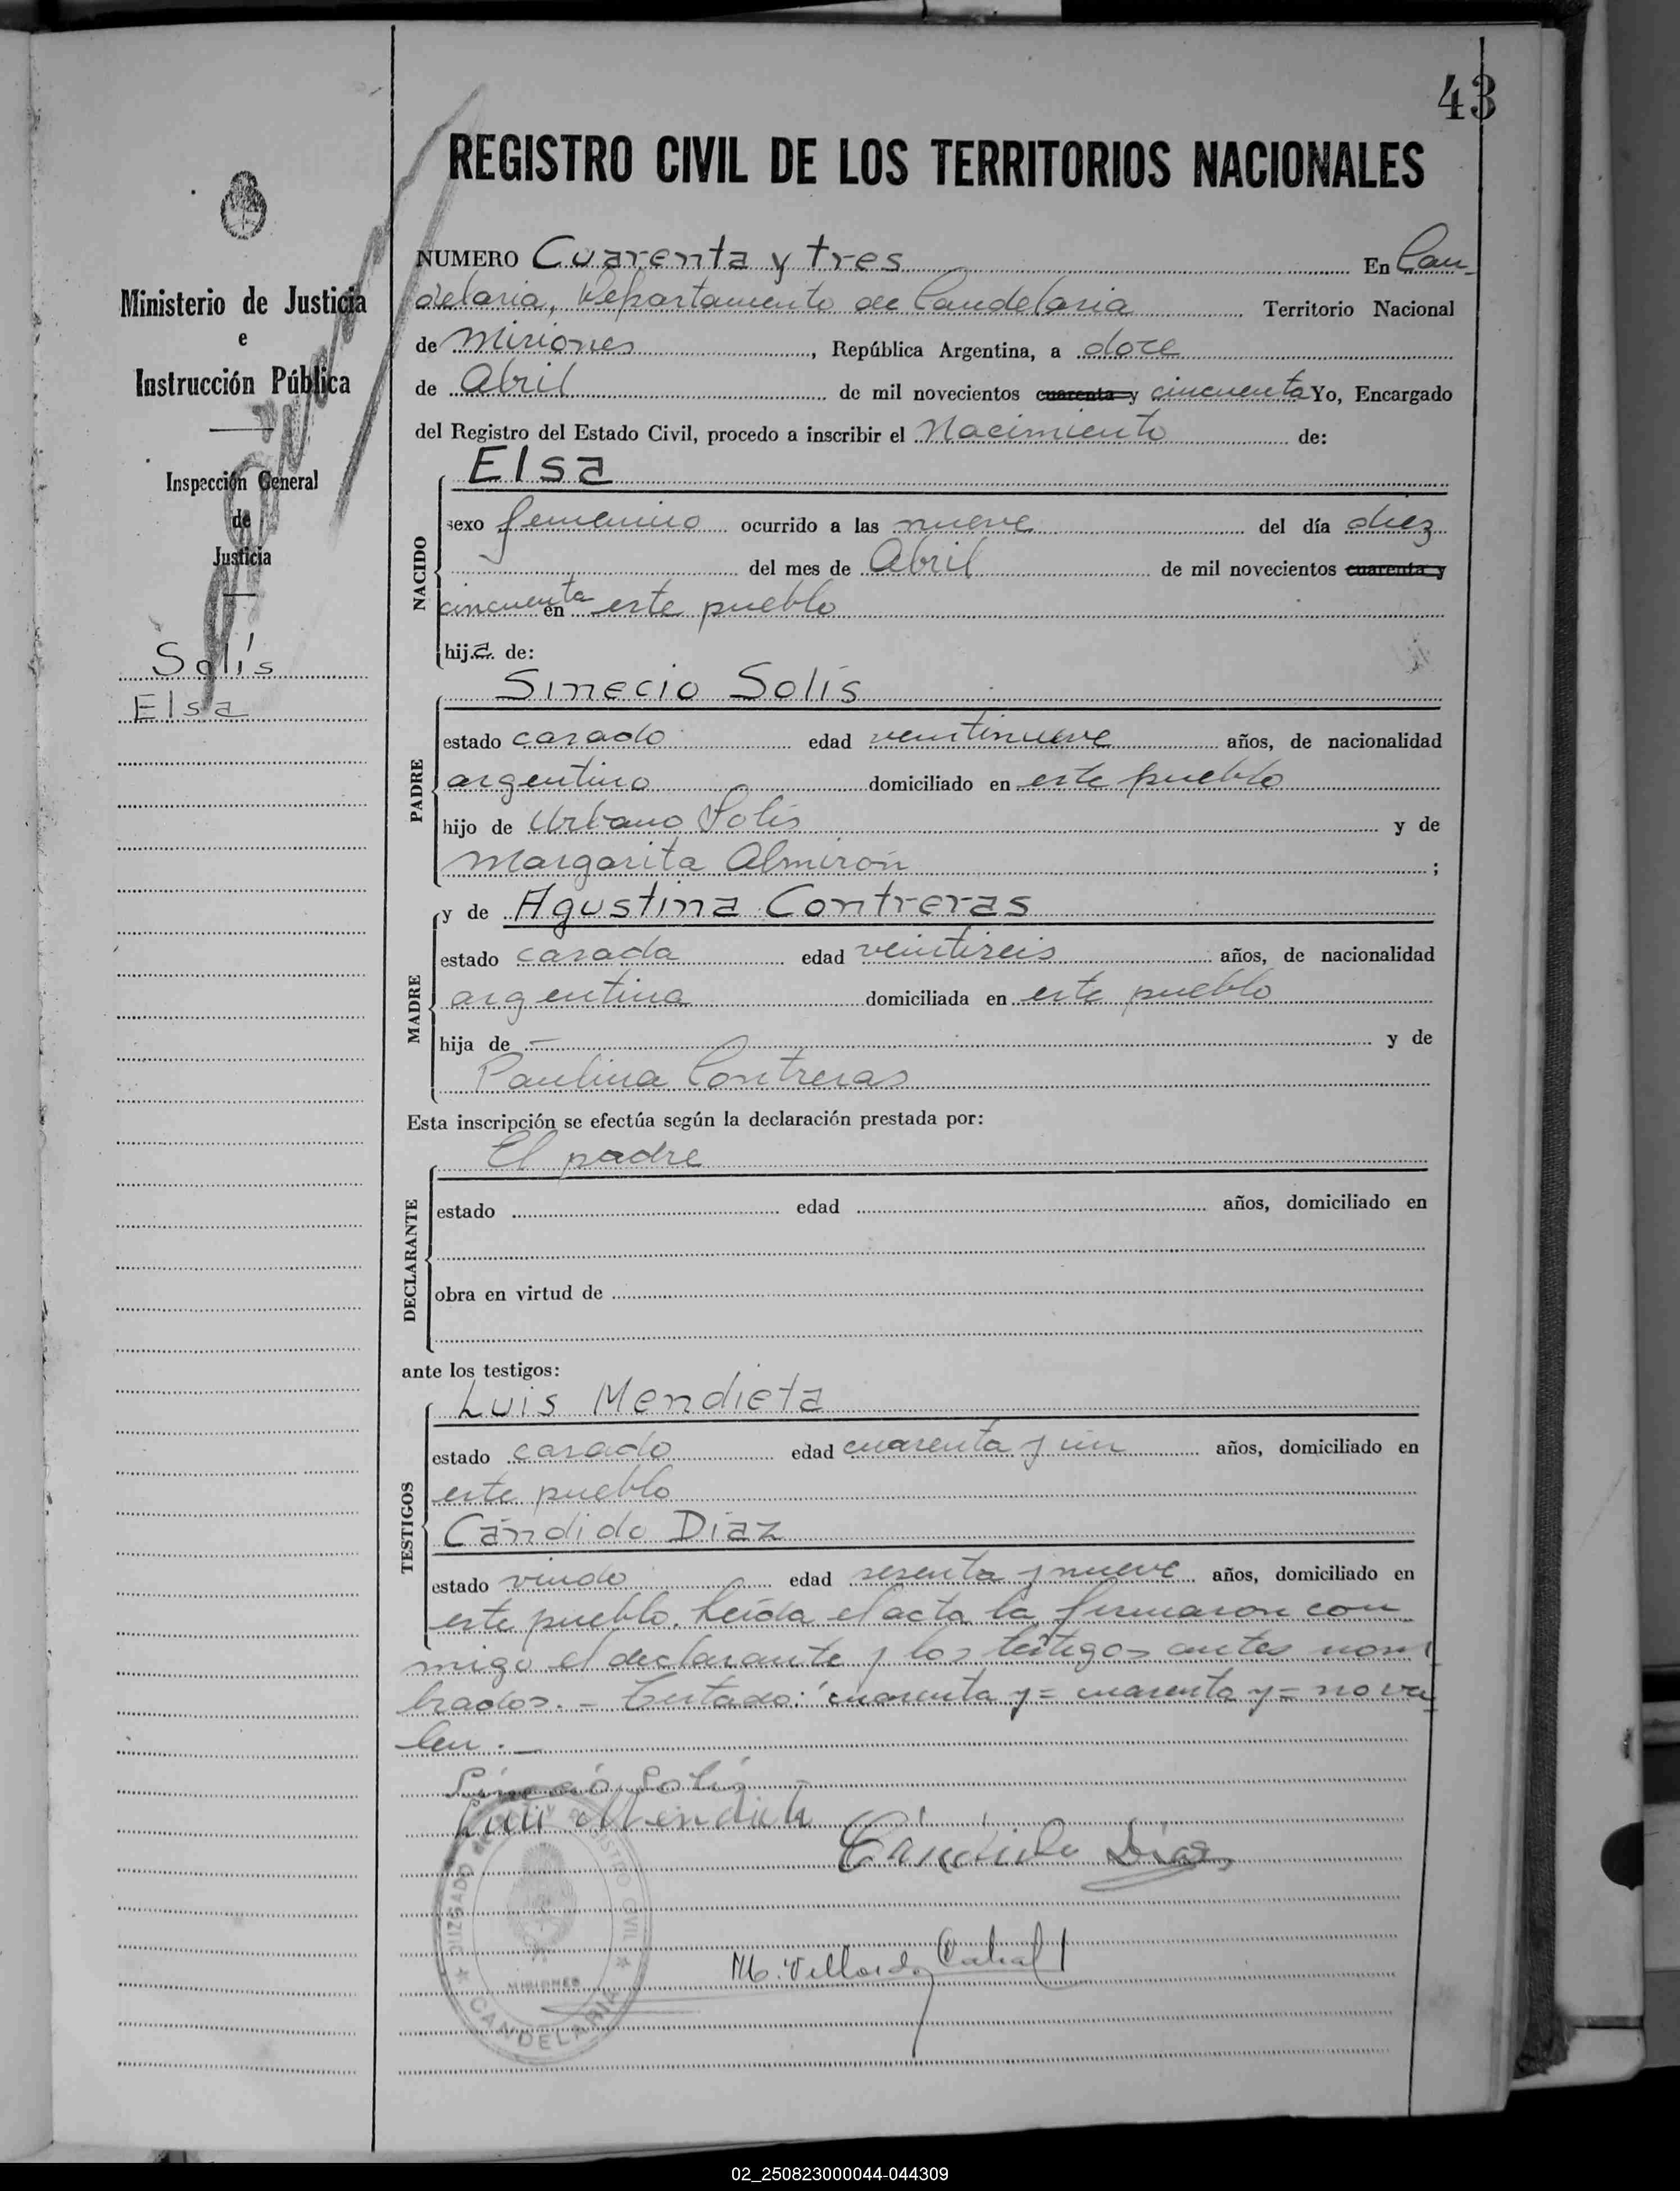 43
REGISTRO CIVIL DE LOS TERRITORIOS NACIONALES
Ministerio de Justicia
e
Instrucción Pública
Inspección General
de
Justicia
Solís
Elsa
NUMERO Cuarenta y tres En Can-
delaria, Departamento de Candelaria Territorio Nacional
de Misiones, República Argentina, a doce
de Abril de mil novecientos cuarenta y cincuenta Yo, Encargado
del Registro del Estado Civil, procedo a inscribir el Nacimiento de:
NACIDO
Elsa
sexo femenino ocurrido a las nueve del día diez
del mes de Abril de mil novecientos cuarenta y
cincuenta en este pueblo
hija de:
PADRE
Sinecio Solís
estado casado edad veintinueve años, de nacionalidad
argentino domiciliado en este pueblo
hijo de Urbano Solís y de
Margarita Almirón ;
MADRE
y de Agustina Contreras
estado casada edad veintiseis años, de nacionalidad
argentina domiciliada en este pueblo
hija de — y de
Paulina Contreras
Esta inscripción se efectúa según la declaración prestada por:
DECLARANTE
El padre
estado edad años, domiciliado en
obra en virtud de
ante los testigos:
TESTIGOS
Luis Mendieta
estado casado edad cuarenta y un años, domiciliado en
este pueblo
Cándido Díaz
estado viudo edad sesenta y nueve años, domiciliado en
este pueblo. Leída el acta la firmaron con
migo el declarante y los testigos antes nom
brados.= Testado: "cuarenta y= cuarenta y= no va
len.—
Sinecio Solís
Luis Mendieta
Cándido Díaz
M. Villordo Cabral
JUZGADO DE PAZ Y REGISTRO CIVIL
MISIONES
CANDELARIA
02_250823000044-044309